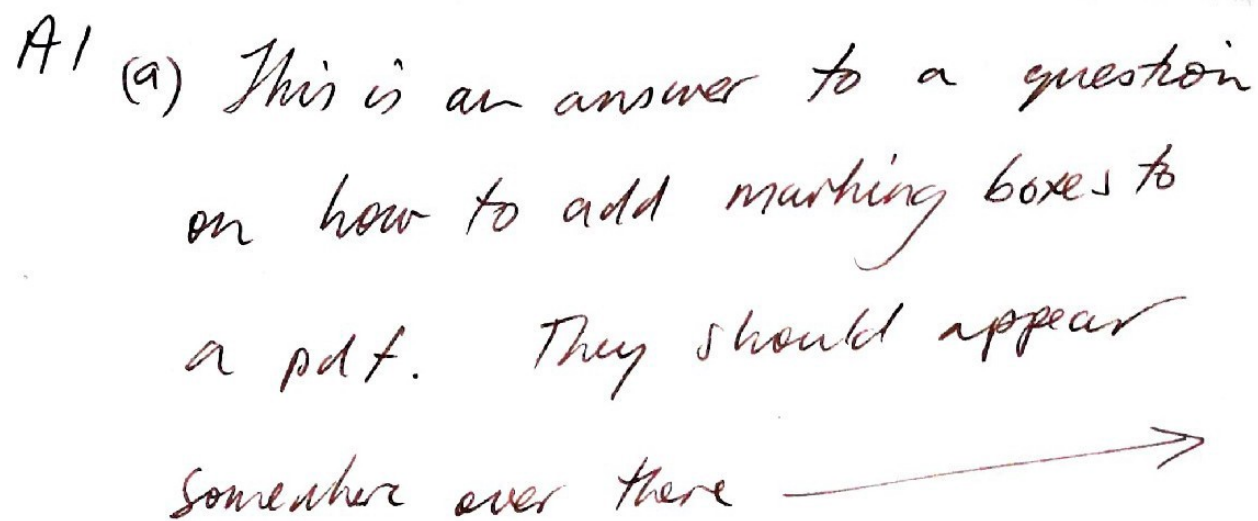 A1 (a) This is an answer to a question
on how to add marking boxes to
a pdf. They should appear
somewhere over there